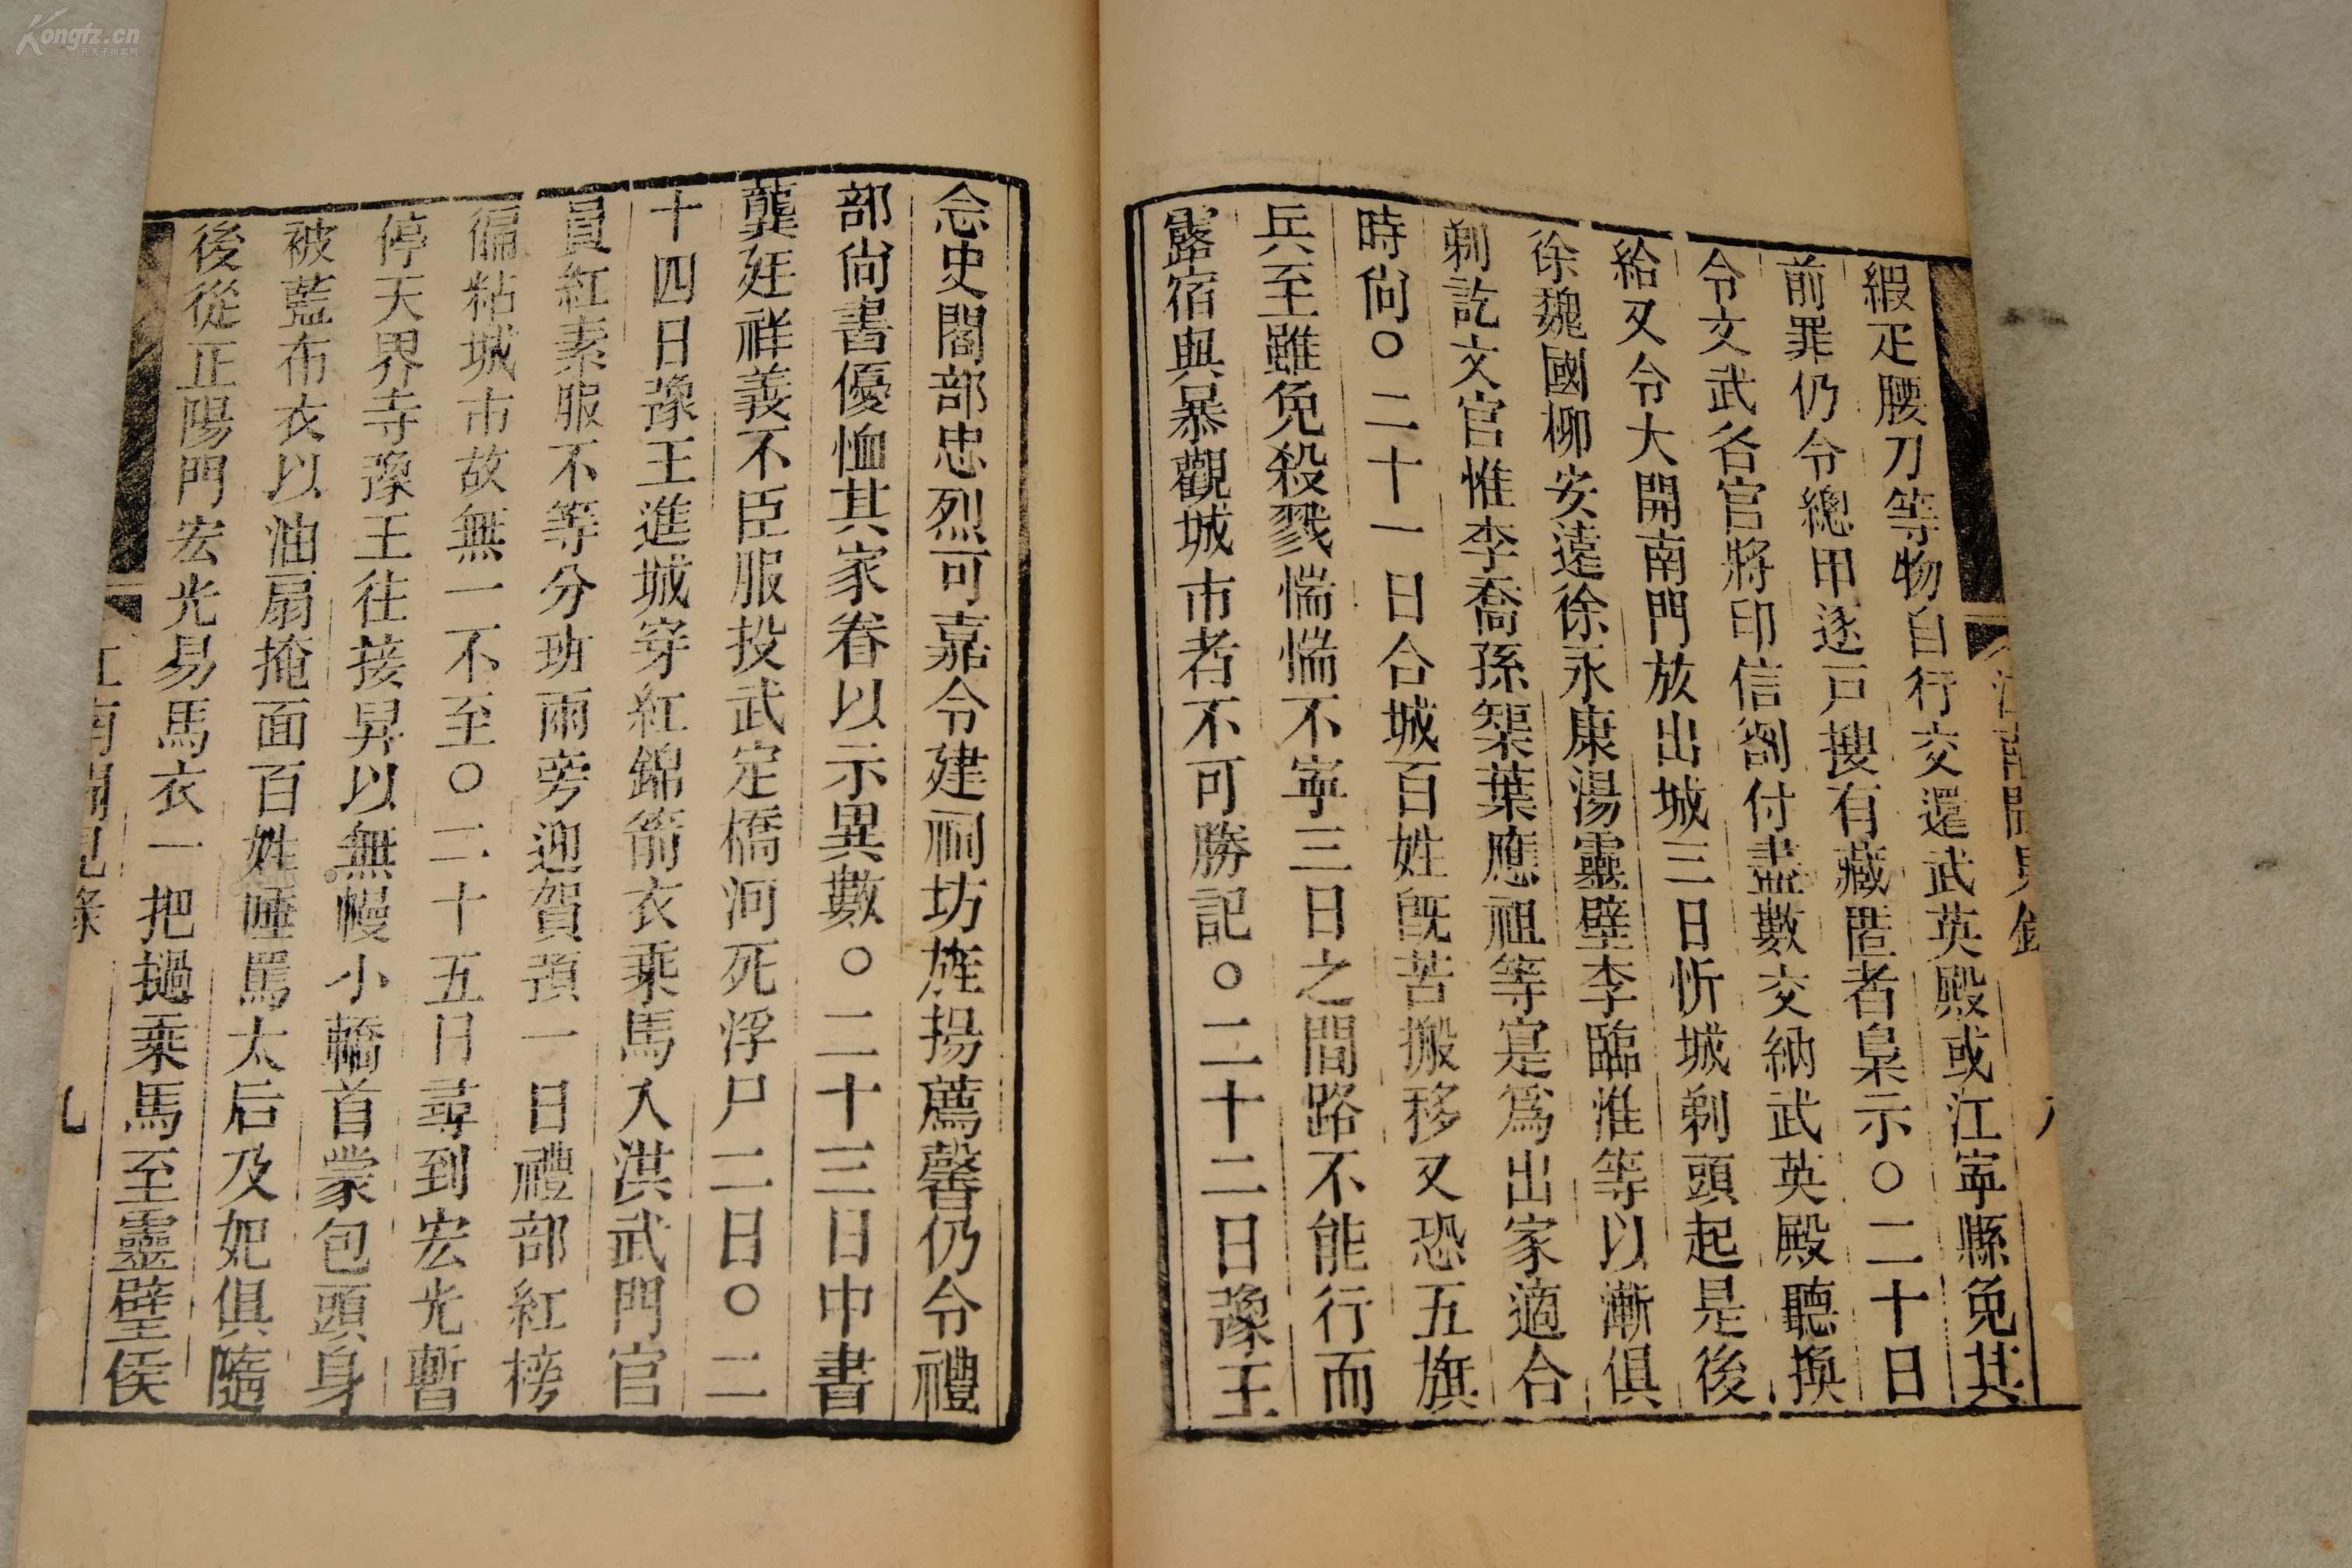 緞疋腰刀等物自行交還武英殿或江寧縣免其
前罪仍令總甲逐戸搜有藏匿者梟示○二十日
令文武各官將印信劄付盡數交納武英殿聽換
給又令大開南門放出城三日忻城剃頭起是後
徐魏國柳安遠徐永康湯靈璧李臨淮等以漸俱
剃訖文官惟李喬孫榘葉應祖等寔爲出家適合
時尙○二十一日合城百姓旣苦搬移又恐五旗
兵至雖免殺戮惴惴不寧三日之間路不能行而
露宿與暴觀城市者不可勝記○二十二日豫王
念史閣部忠烈可嘉令建祠坊旌揚薦馨仍令禮
部尙書優恤其家眷以示異數○二十三日中書
龔廷祥義不臣服投武定橋河死浮尸二日○二
十四日豫王進城穿紅錦箭衣乘馬入洪武門官
員紅素服不等分班兩旁迎賀預一日禮部紅榜
徧粘城市故無一不至○二十五日尋到宏光暫
停天界寺豫王往接舁以無幔小轎首蒙包頭身
被藍布衣以油扇掩面百姓唾罵太后及妃俱隨
後從正陽門宏光易馬衣一把撾乘馬至靈璧侯
江南聞見錄
九
Kongfz.cn